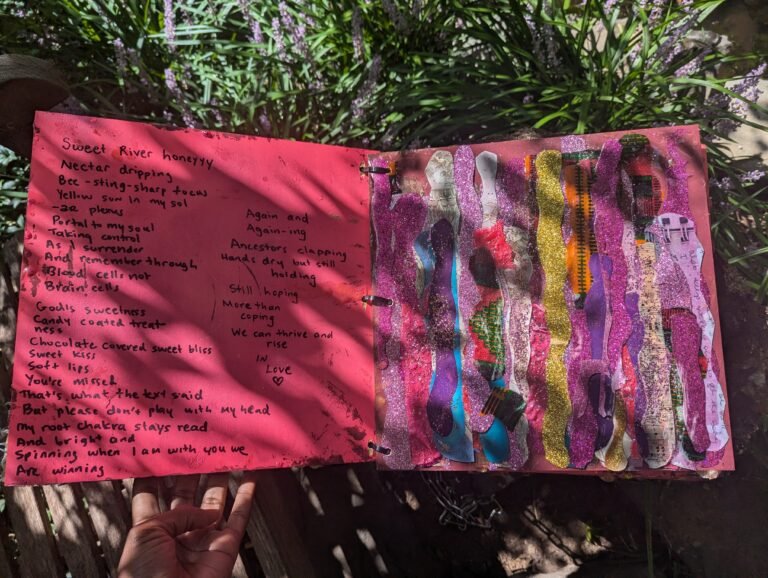 Sweet River honeyyy
Nectar dripping
Bee-sting-sharp focus
Yellow sun in my sol
-ar plexus
Portal to my soul
Taking control
As I surrender
And remember through
Blood cells not
Brain cells
Godls sweetness
Candy coated treat-
ness
Chocolate covered sweet bliss
Sweet kiss
Soft lips
You're missed
That's what the text said
But please don't play with my head
my root chakra stays read
And bright and
Spinning when I am with you we
Are winning
Again and
Again-ing
Ancestors clapping
Hands dry but still
holding
Still hoping
More than
coping
We can thrive and
rise
IN
Love